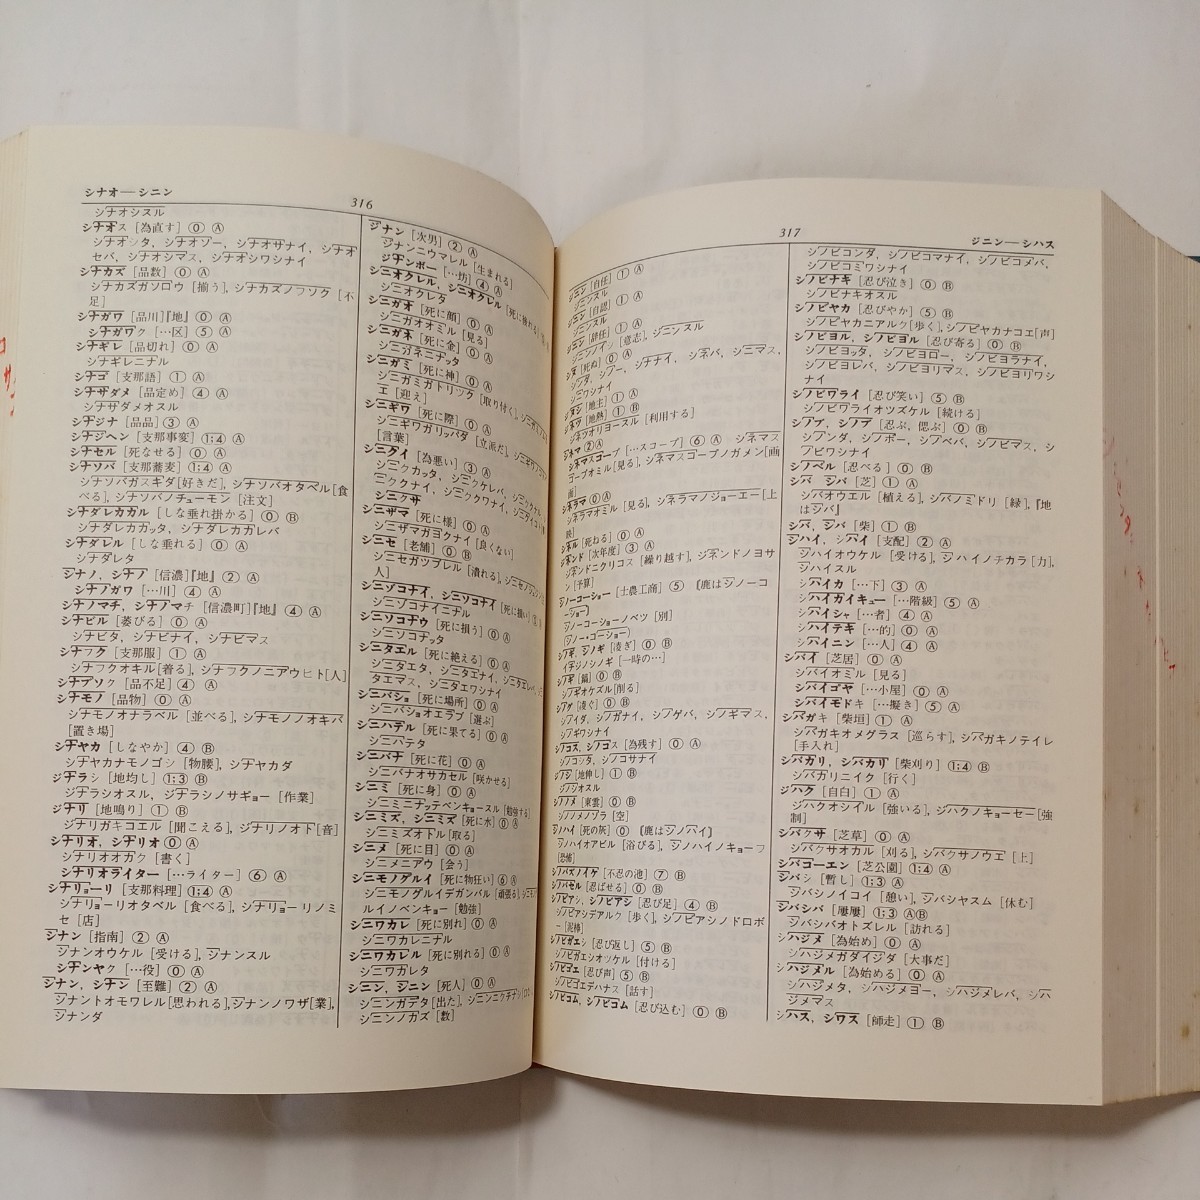 シナオ―シニン
316
シナオシスル
シナオス [為直す] ⓪ Ⓐ
シナオシタ, シナオソー, シナオサナイ, シナオ
セバ, シナオシマス, シナオシワシナイ
シナカズ [品数] ⓪ Ⓐ
シナカズガソロウ [揃う], シナカズノフソク [不
足]
シナガワ [品川]『地』⓪ Ⓐ
シナガワク […区] ⑤ Ⓐ
シナギレ [品切れ] ⓪ Ⓐ
シナギレニナル
シナゴ [支那語] ① Ⓐ
シナサダメ [品定め] ④ Ⓐ
シナサダメオスル
シナジナ [品品] ③ Ⓐ
シナジヘン [支那事変] 1:4 Ⓐ
シナセル [死なせる] ⓪ Ⓐ
シナソバ [支那蕎麦] 1:4 Ⓐ
シナソバガスギダ[好きだ], シナソバオタベル[食
べる], シナソバノチューモン [注文]
シナダレカカル [しな垂れ掛かる] ⓪ Ⓑ
シナダレカカッタ, シナダレカカレバ
シナダレル [しな垂れる] ⓪ Ⓐ
シナダレタ
シナノ, シナノ [信濃]『地』② Ⓐ
シナノガワ […川] ④ Ⓐ
シナノマチ, シナノマチ [信濃町]『地』④ Ⓐ
シナビル [萎びる] ⓪ Ⓐ
シナビタ, シナビナイ, シナビマス
シナフク [支那服] ① Ⓐ
シナフクオキル[着る], シナフクノニアウヒト[人]
シナブソク [品不足] ④ Ⓐ
シナモノ [品物] ⓪ Ⓐ
シナモノオナラベル [並べる], シナモノノオキバ
[置き場]
シナヤカ [しなやか] ④ Ⓑ
シナヤカナモノゴシ [物腰], シナヤカダ
ジナラシ [地均し] 1:3 Ⓑ
ジナラシオスル, ジナラシノサギョー [作業]
ジナリ [地鳴り] ① Ⓑ
ジナリガキコエル [聞こえる], ジナリノオト[音]
シナリオ, シナリオ ⓪ Ⓐ
シナリオオカク [書く]
シナリオライター […ライター] ⑥ Ⓐ
シナリョーリ [支那料理] 1:4 Ⓐ
シナリョーリオタベル [食べる], シナリョーリノミ
セ [店]
シナン [指南] ② Ⓐ
シナンオウケル [受ける], シナンスル
シナンヤク […役] ⓪ Ⓐ
シナン, シナン [至難] ② Ⓐ
シナントオモワレル[思われる], シナンノワザ[業],
シナンダ
ジナン [次男] ② Ⓐ
ジナンニウマレル [生まれる]
ジナンボー […坊] ④ Ⓐ
シニオクレル, シニオクレル
シニオクレタ
シニガオ [死に顔] ⓪ Ⓐ
シニガオオミル [見る]
シニガネ [死に金] ⓪ Ⓐ
シニガネニナッタ
シニガミ [死に神] ⓪ Ⓐ
シニガミガトリツク [取り付く],
エ [迎え]
シニギワ [死に際] ⓪ Ⓐ
シニギワガリッパダ [立派だ],
[言葉]
シニクイ [為悪い] ③ Ⓐ
シニクカッタ, シニクケレバ,
シニククナイ, シニククワナイ,
シニクサ
シニザマ [死に様] ⓪ Ⓐ
シニザマガヨクナイ [良くない]
シニセ [老舗] ⓪ Ⓑ
シニセガツブレル [潰れる],
人]
シニゾコナイ, シニゾコナイ
シニゾコナイニナル
シニソコナウ [死に損う] ⓪ Ⓐ
シニソコナッタ
シニタエル [死に絶える] ⓪ Ⓐ
シニタエタ, シニタエナイ,
タエマス, シニタエワシナイ
シニバショ [死に場所] ⓪ Ⓐ
シニバショオエラブ [選ぶ]
シニハテル [死に果てる] ⓪ Ⓐ
シニハテタ
シニバナ [死に花] ⓪ Ⓐ
シニバナオサカセル [咲かせる]
シニミ [死に身] ⓪ Ⓐ
シニミニナッテベンキョースル [勉強する]
シニミズ, シニミズ [死に水] ⓪ Ⓐ
シニミズオトル [取る]
シニメ [死に目] ⓪ Ⓐ
シニメニアウ [会う]
シニモノグルイ [死に物狂い] ⑥ Ⓐ
シニモノグルイデガンバル [頑張る],
ルイノベンキョー [勉強]
シニワカレ [死に別れ] ⓪ Ⓐ
シニワカレニナル
シニワカレル [死に別れる] ⓪ Ⓐ
シニワカレタ
シニン, シニン [死人] ⓪ Ⓐ
シニンガデタ [出た],
シニンノカズ [数]
317
ジニン―シハス
ジニン [自任] ① Ⓐ
ジニンスル
ジニン [自認] ① Ⓐ
ジニンスル
ジニン [辞任] ① Ⓐ
ジニンノイシ [意志], ジニンスル
シヌ [死ぬ] ⓪ Ⓐ
シンダ, シノー, シナナイ, シネバ, シニマス,
シニワシナイ
ジヌシ [地主] ① Ⓐ
ジネツ [地熱] ① Ⓑ
ジネツオリヨースル [利用する]
シネマ ② Ⓐ
シネマスコープ […スコープ] ⑥ Ⓐ シネマス
コープオミル [見る], シネマスコープノガメン[画
面]
シネラマ ⓪ Ⓐ
シネラマオミル [見る], シネラマノジョーエー[上
映]
シネル [死ねる] ⓪ Ⓐ
ジネンド [次年度] ③ Ⓐ
ジネンドニクリコス [繰り越す], ジネンドノヨサ
ン [予算]
シノーコーショー [士農工商] ⑤ 〔鹿はシノーコ
ーショー〕
シノーコーショーノベツ [別]
(シノー・コーショー)
シノギ, シノギ [凌ぎ] ⓪ Ⓑ
イチジノシノギ [一時の…]
シノギ [鎬] ⓪ Ⓑ
シノギオケズル[削る]
シノグ [凌ぐ] ⓪ Ⓑ
シノイダ, シノガナイ, シノゲバ, シノギマス,
シノギワシナイ
シノコス, シノコス [為残す] ⓪ Ⓐ
シノコシタ, シノコサナイ
ジノシ [地伸し] ① Ⓑ
ジノシオスル
シノノメ [東雲] ⓪ Ⓑ
シノノメノソラ [空]
シノハイ [死の灰] ⓪ 〔鹿はシノハイ〕
シノハイオアビル [浴びる], シノハイノキョーフ
[恐怖]
シノバズノイケ [不忍の池] ⑦ Ⓑ
シノバセル [忍ばせる] ⓪ Ⓑ
シノビアシ, シノビアシ [忍び足] ④ Ⓑ
シノビアシデアルク [歩く], シノビアシノドロボ
ー [泥棒]
シノビガエシ [忍び返し] ⑤ Ⓑ
シノビガエシオツケル [付ける]
シノビゴエ [忍び声] ⑤ Ⓑ
シノビゴエデハナス [話す]
シノビコム, シノビコム [忍び込む] ⓪ Ⓑ
シノビコンダ, シノビコマナイ, シノビコメバ,
シノビコミワシナイ
シノビナキ [忍び泣き] ⓪ Ⓑ
シノビナキオスル
シノビヤカ [忍びやか] ⑤ Ⓑ
シノビヤカニアルク[歩く], シノビヤカナコエ[声]
シノビヨル, シノビヨル [忍び寄る] ⓪ Ⓑ
シノビヨッタ, シノビヨロー, シノビヨラナイ,
シノビヨレバ, シノビヨリマス, シノビヨリワシ
ナイ
シノビワライ [忍び笑い] ⑤ Ⓑ
シノビワライオツズケル [続ける]
シノブ, シノブ [忍ぶ, 偲ぶ] ⓪ Ⓑ
シノンダ, シノボー, シノベバ, シノビマス, シ
ノビワシナイ
シノベル [忍べる] ⓪ Ⓑ
シバ シバ [芝] ① Ⓐ
シバオウエル [植える], シバノミドリ [緑],『地
はシバ』
シバ, シバ [柴] ① Ⓑ
シハイ, シハイ [支配] ② Ⓐ
シハイオウケル [受ける], シハイノチカラ [力],
シハイスル
シハイカ […下] ③ Ⓐ
シハイカイキュー […階級] ⑤ Ⓐ
シハイシャ […者] ④ Ⓐ
シハイテキ […的] ⓪ Ⓐ
シハイニン […人] ④ Ⓐ
シバイ [芝居] ⓪ Ⓐ
シバイオミル [見る]
シバイゴヤ […小屋] ⓪ Ⓐ
シバイモドキ […擬き] ⑤ Ⓐ
シバガキ [柴垣] ① Ⓐ
シバガキオメグラス [巡らす], シバガキノテイレ
[手入れ]
シバカリ, シバカリ [柴刈り] 1:4 Ⓑ
シバカリニイク [行く]
ジハク [自白] ① Ⓐ
ジハクオシイル [強いる], ジハクノキョーセー[強
制]
シバクサ [芝草] ⓪ Ⓐ
シバクサオカル [刈る], シバクサノウエ [上]
シバコーエン [芝公園] 1:4 Ⓐ
シバシ [暫し] 1:3 Ⓐ
シバシノイコイ [憩い], シバシヤスム [休む]
シバシバ [屡屡] 1:3 ⒶⒷ
シバシバオトズレル [訪れる]
シハジメ [為始め] ⓪ Ⓐ
シハジメガダイジダ [大事だ]
シハジメル [為始める] ⓪ Ⓐ
シハジメタ, シハジメヨー, シハジメレバ, シハ
ジメマス
シハス, シワス [師走] ① Ⓑ